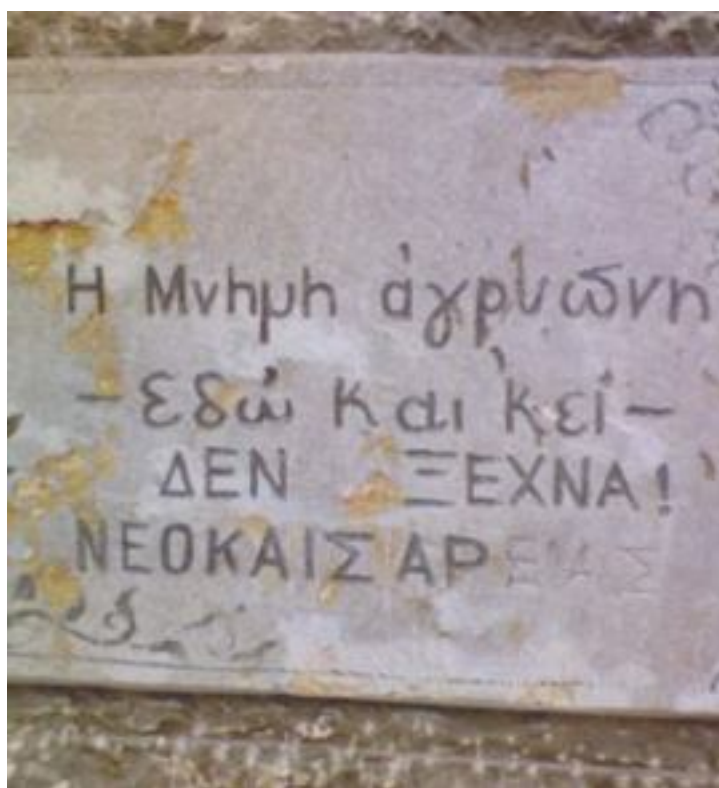 Η Μνημη ἀγρυπνη
- εδώ και 'κεί -
ΔΕΝ ΞΕΧΝΑ!
ΝΕΟΚΑΙΣΑΡΕΙΑΣ